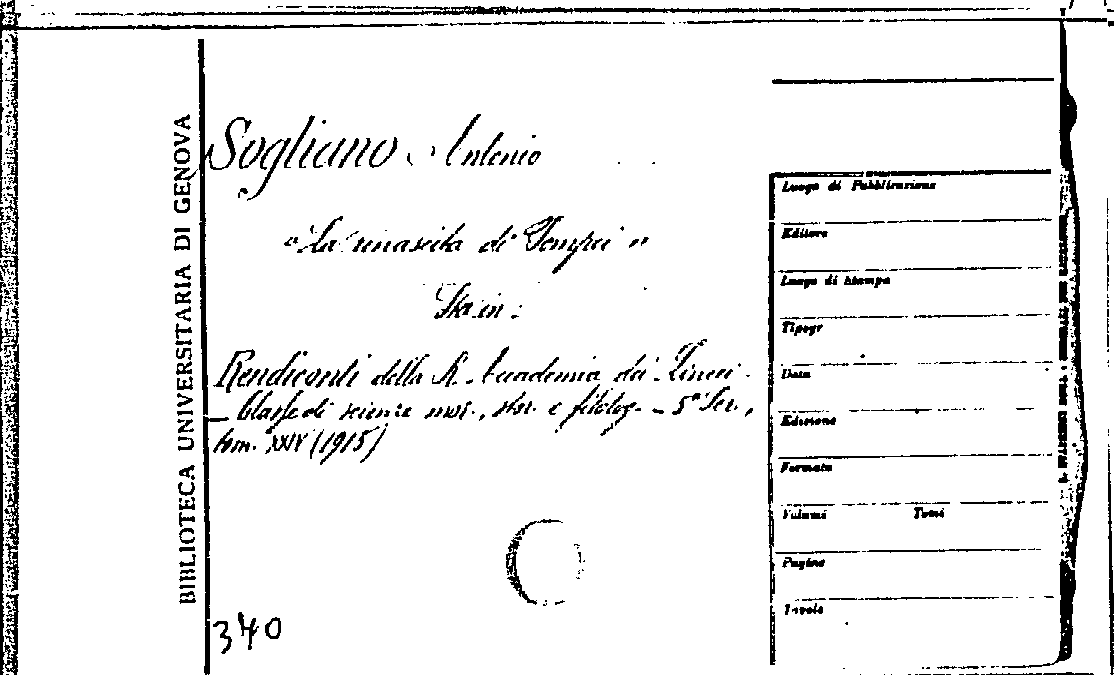 BIBLIOTECA UNIVERSITARIA DI GENOVA
Sogliano Antonio
"La rinascita di Pompei"
Sta in:
Rendiconti della R. Accademia dei Lincei -
- Classe di scienze mor., stor. e filolog. - 5ª Ser.,
tom. XXIV (1915)
340
Luogo di Pubblicazione
Editore
Luogo di Stampa
Tipogr
Data
Edizione
Formato
Volumi Tomi
Pagine
Tavole